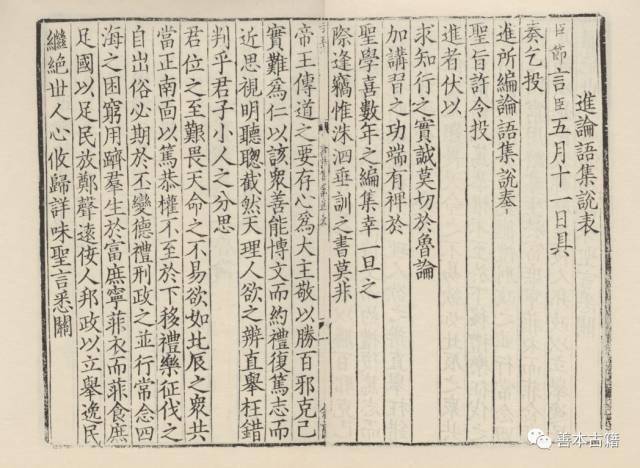 進論語集說表
臣節言臣五月十一日具
奏乞投
進所編論語集說奏
聖旨許令投
進者伏以
求知行之實誠莫切於魯論
加講習之功端有裨於
聖學喜數年之編集幸一旦之
際逢竊惟洙泗垂訓之書莫非
帝王傳道之要存心爲大王敬以勝百邪克己
實難爲仁以該衆善能博文而約禮復篤志而
近思視明聽聰截然天理人欲之辨直舉枉錯
判乎君子小人之分思
君位之至艱畏天命之不易欲如北辰之衆共
當正南面以篤恭權不至於下移禮樂征伐之
自出俗必期於丕變德禮刑政之並行常念四
海之困窮用躋羣生於富庶寧菲衣而菲食庶
足國以足民放鄭聲遠佞人邦政以立舉逸民
繼絕世人心攸歸詳味聖言悉關
善本古籍